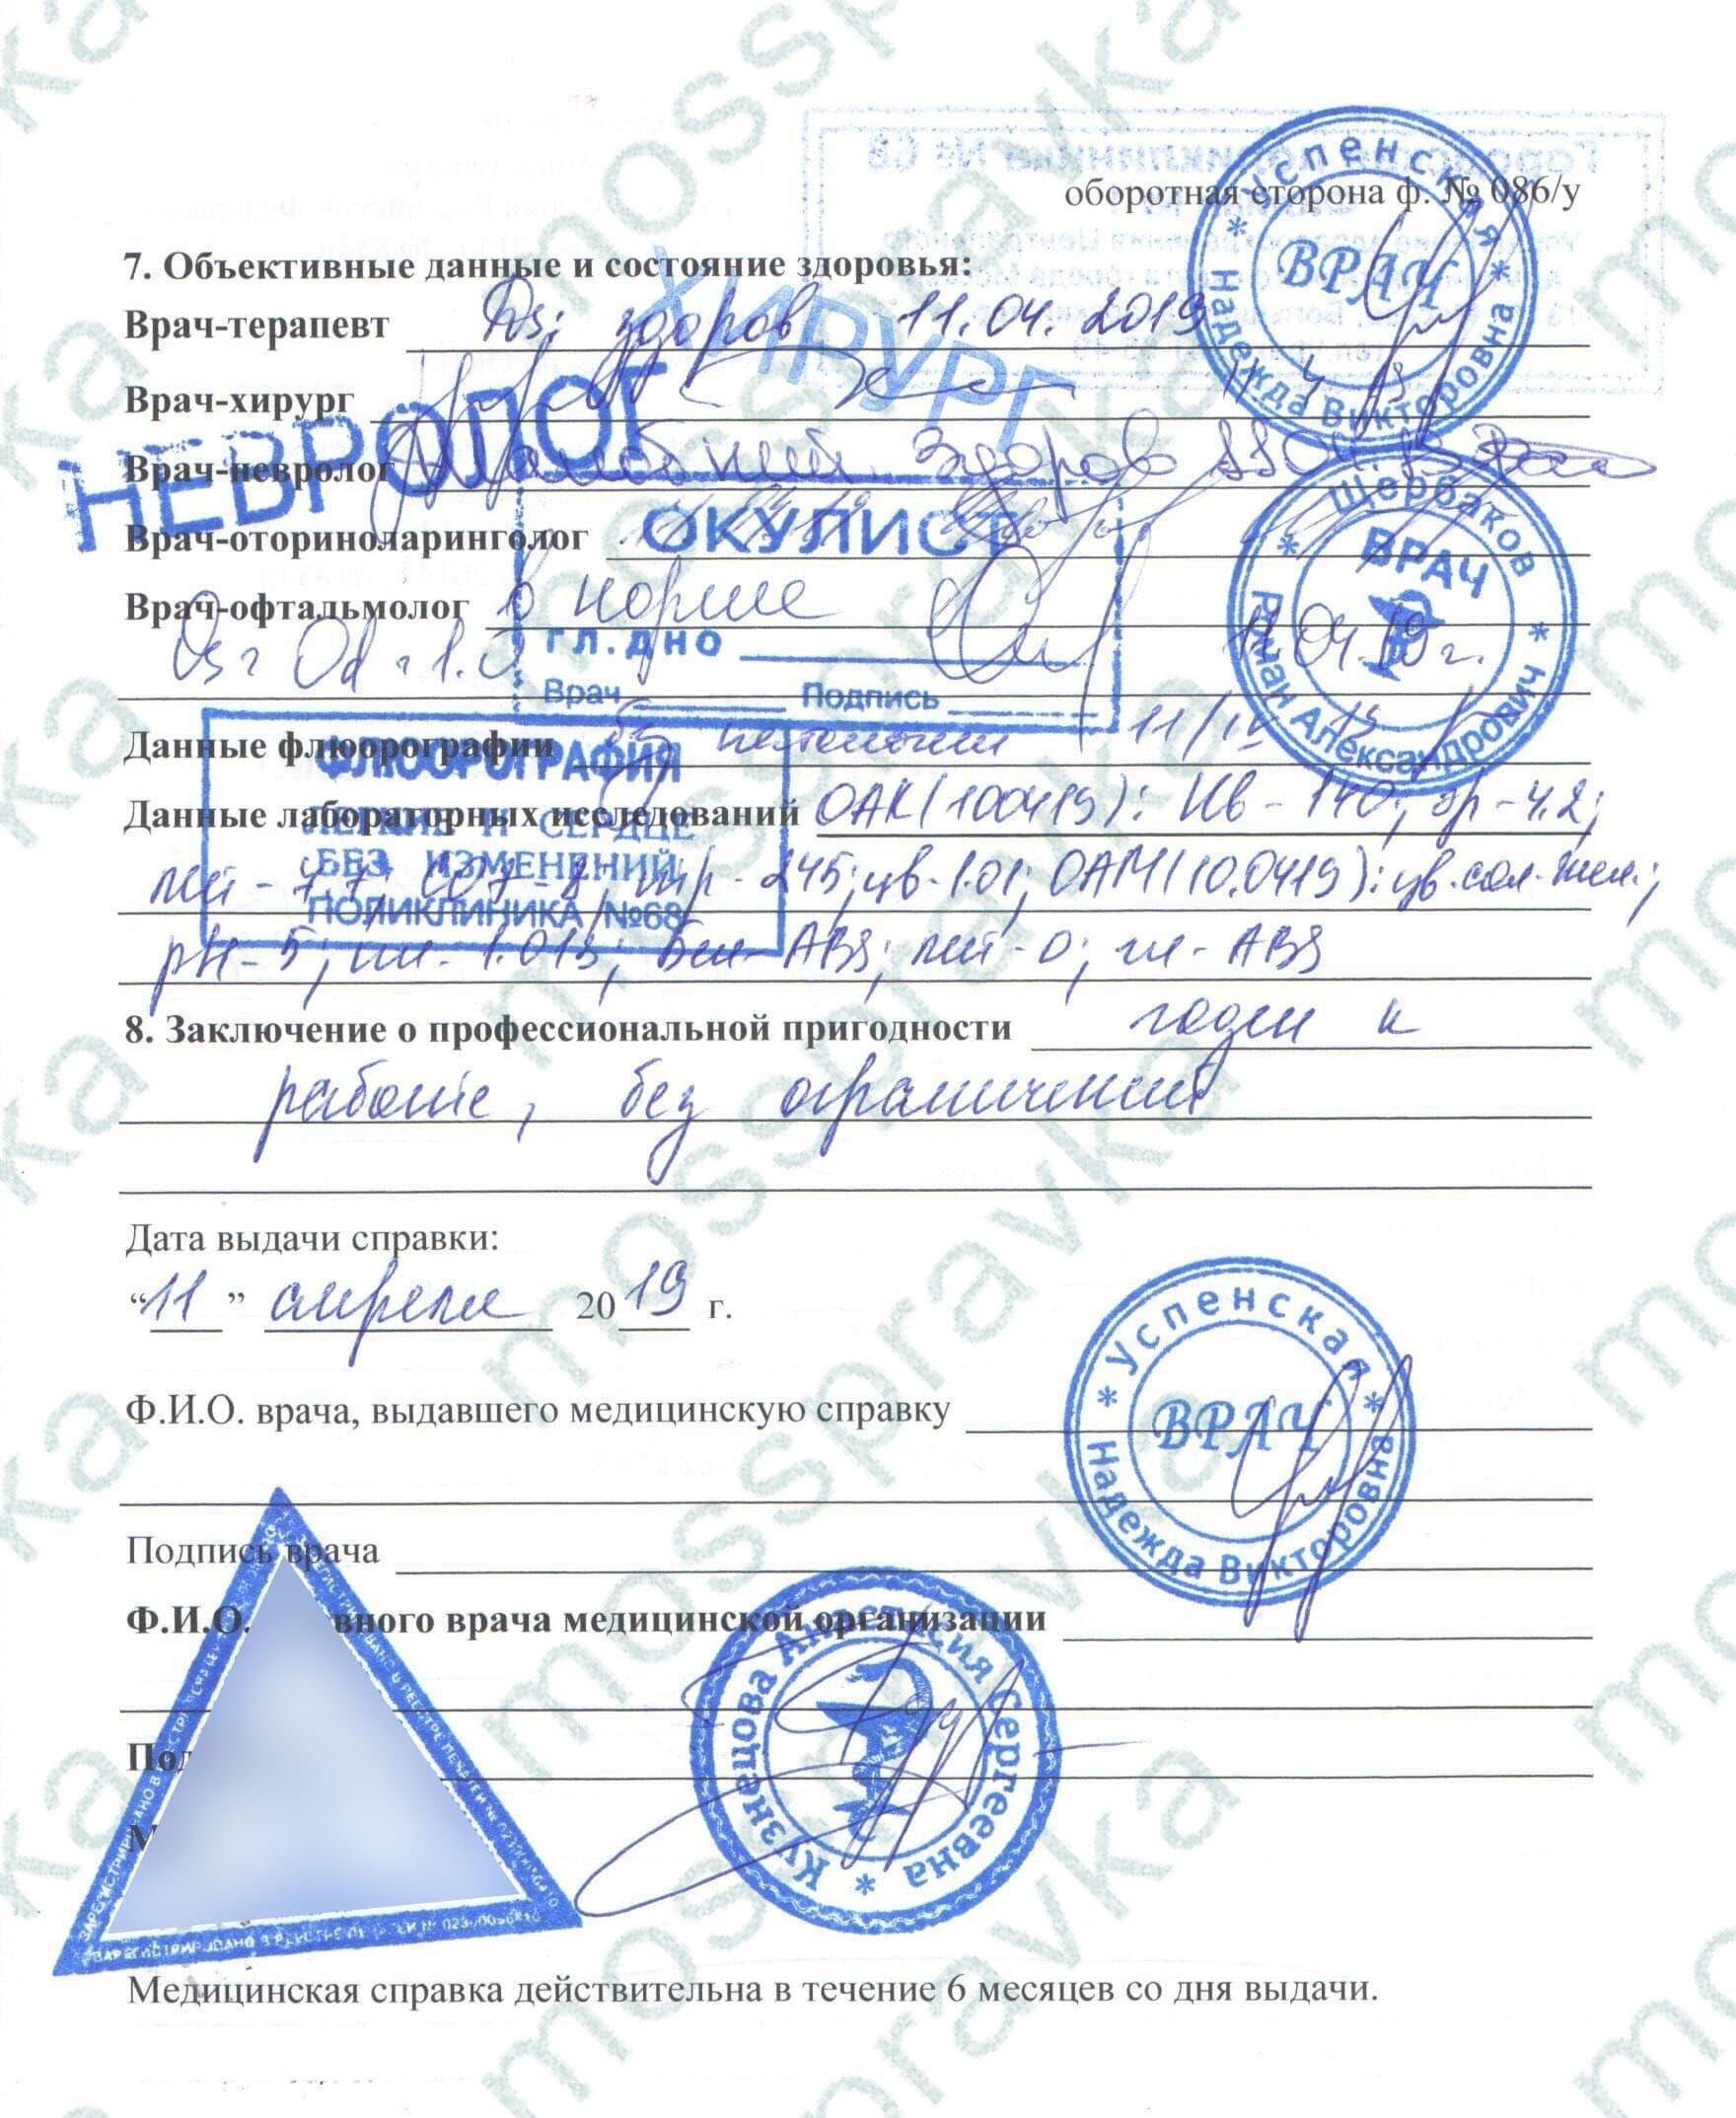 оборотная сторона ф. № 086/у
Успенская Надежда Викторовна
ВРАЧ
7. Объективные данные и состояние здоровья:
Врач-терапевт Ds: здоров 11.04.2019
ХИРУРГ
Врач-хирург
НЕВРОЛОГ
Врач-невролог Здоров
Врач-оториноларинголог
ОКУЛИСТ
Щербаков Роман Александрович
ВРАЧ
Врач-офтальмолог в норме
Гл. ДНО
11.04.19 г.
Врач Подпись
Данные флюорографии без патологии 11/IV 19
ФЛЮОРОГРАФИЯ
ЛЕГКИЕ И СЕРДЦЕ
БЕЗ ИЗМЕНЕНИЙ
ПОЛИКЛИНИКА №68
Данные лабораторных исследований ОАК(100419): Нв - 140; эр - 4.2;
лей - 7.7; СОЭ - 8; тр - 245; цв - 1.01; ОАМ(10.0419): цв. сол-жел.;
рН - 5; пл - 1.013; бел - ABS; лей - 0; гл - ABS
8. Заключение о профессиональной пригодности годен к
работе, без ограничений
Дата выдачи справки:
“11” апреля 2019 г.
Успенская Надежда Викторовна
ВРАЧ
Ф.И.О. врача, выдавшего медицинскую справку
Подпись врача
Ф.И.О. вного врача медицинской организации
Кузнецова Анастасия Сергеевна
Под
М
ЗАРЕГИСТРИРОВАНО В РЕЕСТРЕ ПЕЧАТЕЙ №
Медицинская справка действительна в течение 6 месяцев со дня выдачи.
mosspravka